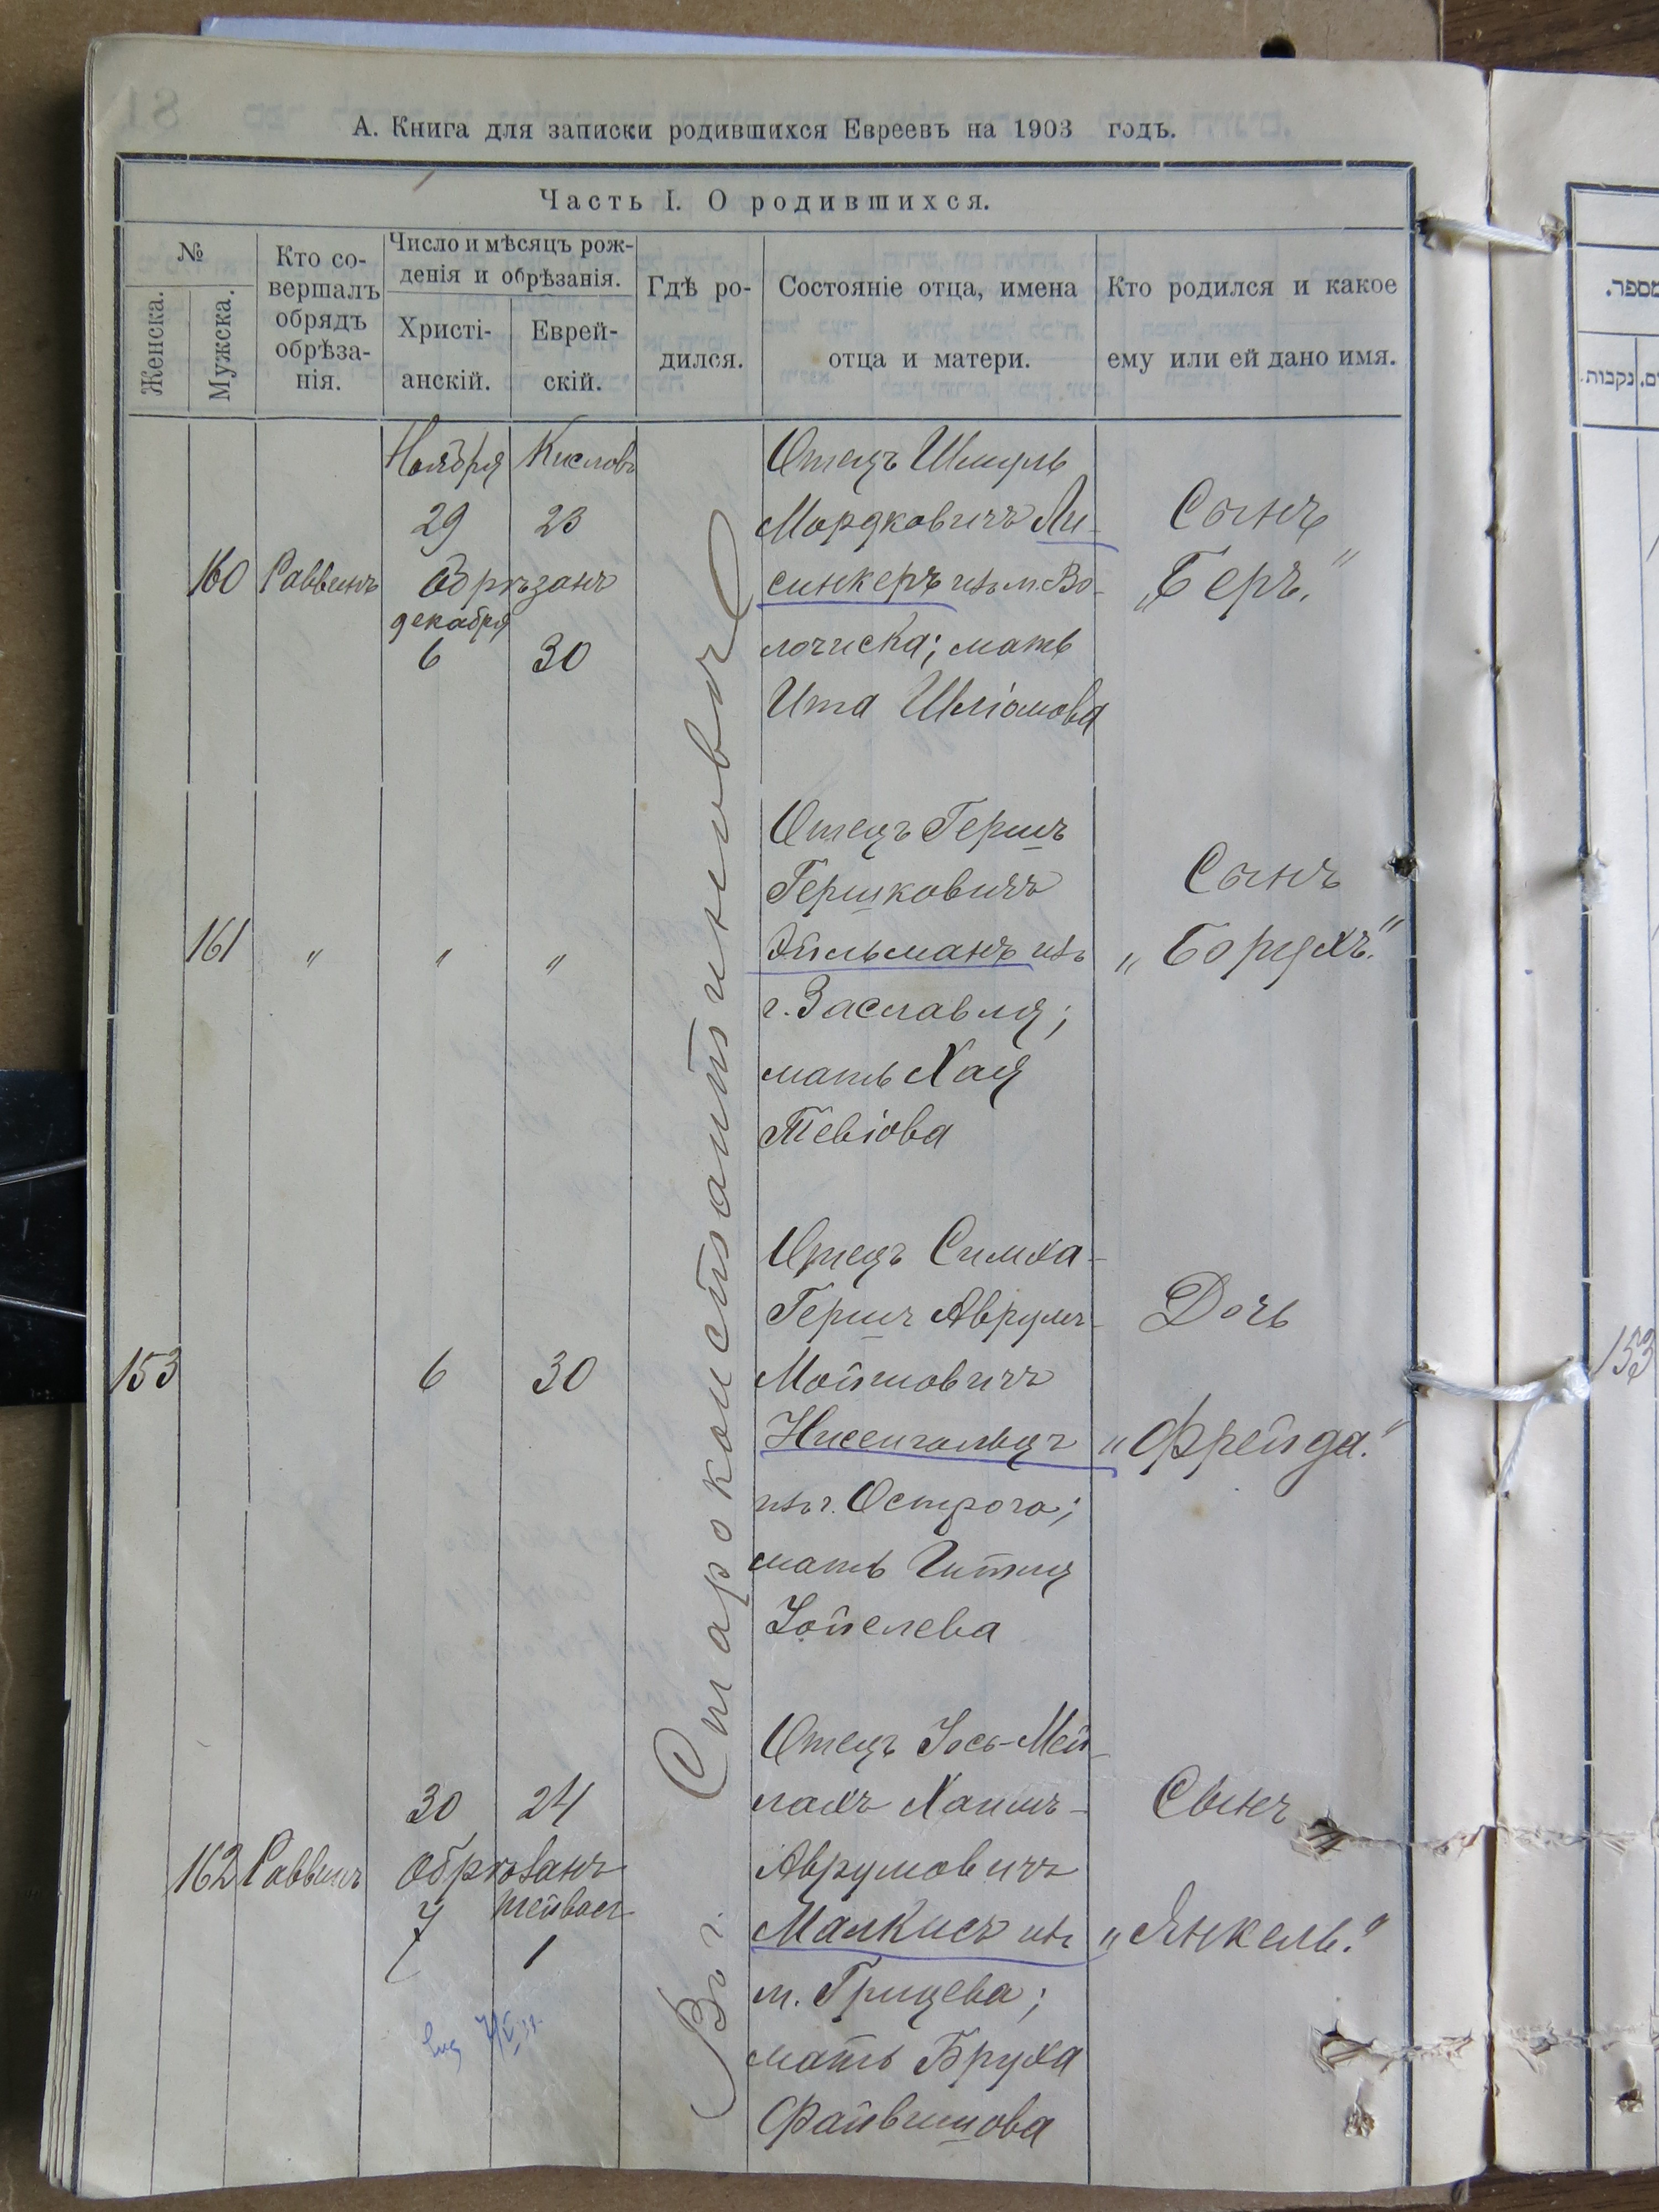 А. Книга для записки родившихся Евреевъ на 1903 годъ.
Часть I. О родившихся.
№
Женска.
Мужска.
Кто со-
вершалъ
обрядъ
обрѣза-
нія.
Число и мѣсяцъ рож-
денія и обрѣзанія.
Христі-
анскій.
Еврей-
скій.
Гдѣ ро-
дился.
Состояніе отца, имена
отца и матери.
Кто родился и какое
ему или ей дано имя.
Въ г. Староконстантиновѣ
160 Раввинъ
Ноября Кислова
29 23
Обрѣзанъ
декабря
6 30
Отецъ Шмуль
Мордковичъ Ли-
синкеръ изъ м. Во-
лочиска; мать
Ита Шліомова
Сынъ
„Беръ."
161 " " "
Отецъ Гершъ
Гершковичъ
Эйльманъ изъ
г. Заславля;
мать Хая
Тевіова
Сынъ
„Борухъ."
153 6 30
Отецъ Симха-
Гершъ Аврумъ-
Мойшовичъ
Нисенгольцъ
изъ г. Острога;
мать Гитля
Іойелева
Дочь
„Фрейда."
162 Раввинъ
30 24
Обрѣзанъ
7 Тейвас
1
Отецъ Іось-Мей-
лахъ Хаимъ-
Аврумовичъ
Малкисъ изъ
м. Грицева;
мать Бруха
Файвишова
Сынъ
„Янкель."
מספר.
נקבות.
153